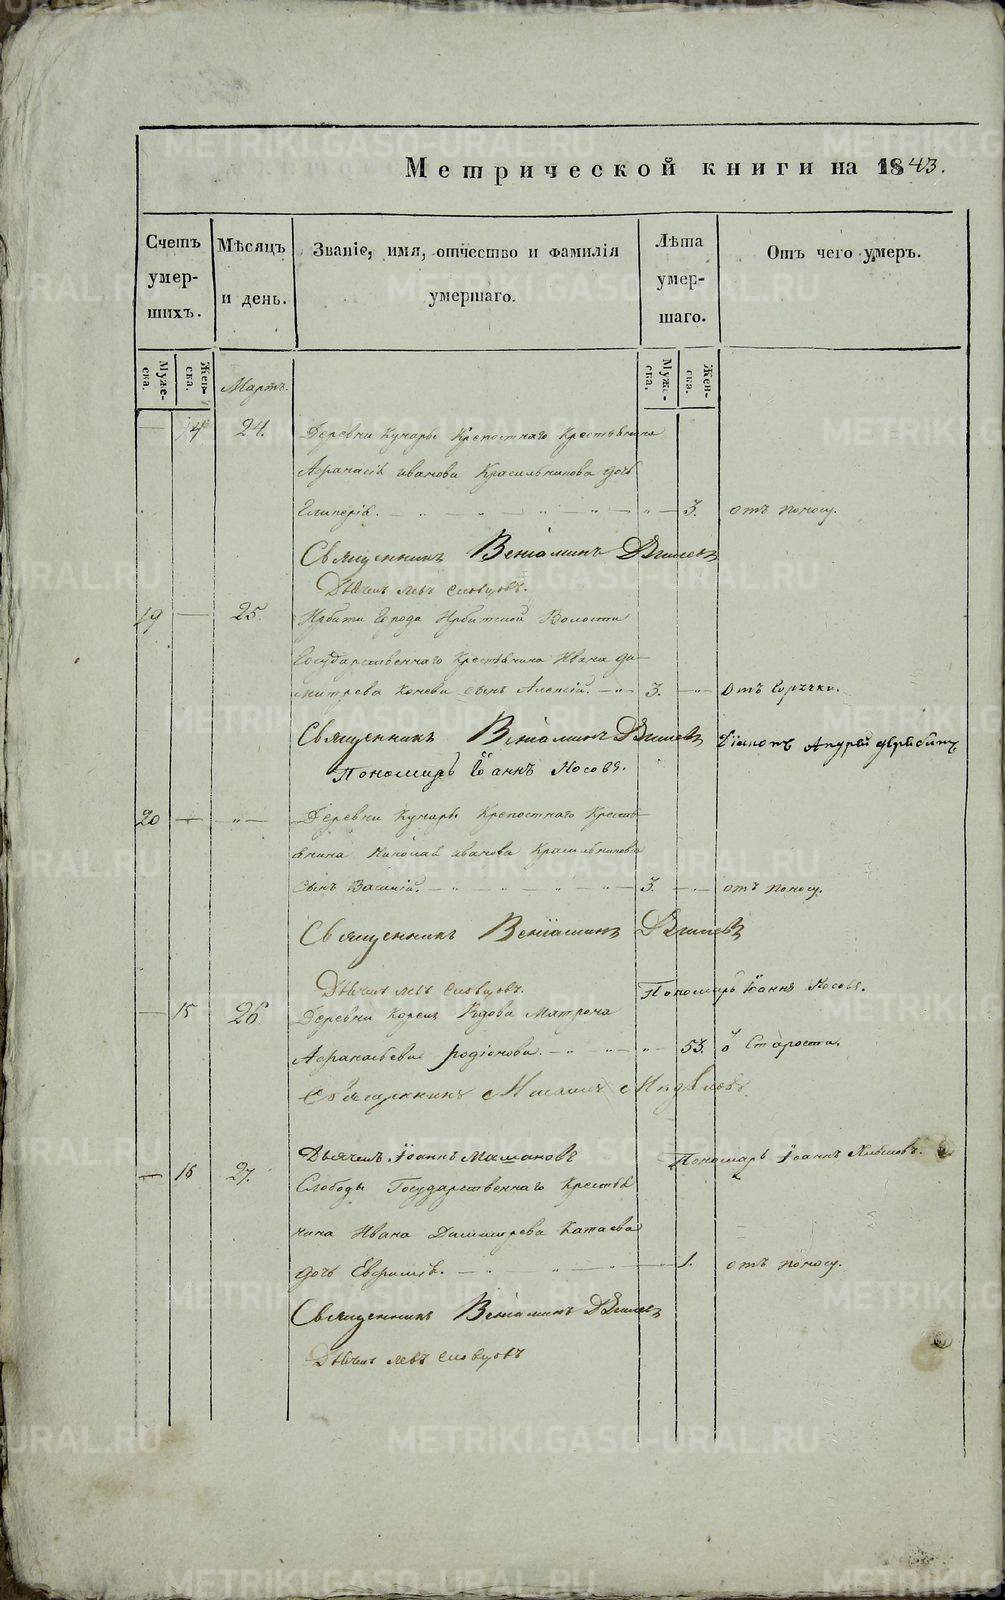 Метрической книги на 1843.
Счетъ умер- шихъ.
Мѣсяцъ и день.
Званіе, имя, отчество и фамилія умершаго.
Лѣта умер- шаго.
Отъ чего умеръ.
Муже- ска.
Жен- ска.
Муже- ска.
Жен- ска.
Мартъ.
14 24. Деревни Кочары Крѣпостнаго Крестьянина
Афанасія Иванова Красильникова дочь
Гликерія. 3. отъ поносу.
Священникъ Веніаминъ
Дьячекъ Левъ Словцовъ.
19 25. Ирбити Города Ирбитской Волости
Государственнаго Крестьянина Ивана Ди-
митрева сынъ Алексій. 3. Отъ Горячки.
Священникъ Веніаминъ Діаконъ Андрей
Пономарь Іоаннъ Носовъ.
20 Деревни Кочары Крѣпостнаго Кресть-
янина Николая Иванова Красильникова
сынъ Василій. 3. отъ поносу.
Священникъ Веніаминъ
Дьячекъ Левъ Словцовъ. Пономарь Іоаннъ Носовъ.
15 26 Деревни Вдова Матрона
Афанасьева Родіонова. 53. Старости.
Священникъ
Дьячекъ Іоаннъ Пономарь Іоаннъ
16 27. Слободы Государственнаго Крестья
нина Ивана Димитрева Катаева
дочь 1. отъ поносу.
Священникъ Веніаминъ
Дьячекъ Левъ Словцовъ
METRIKI.GASO-URAL.RU